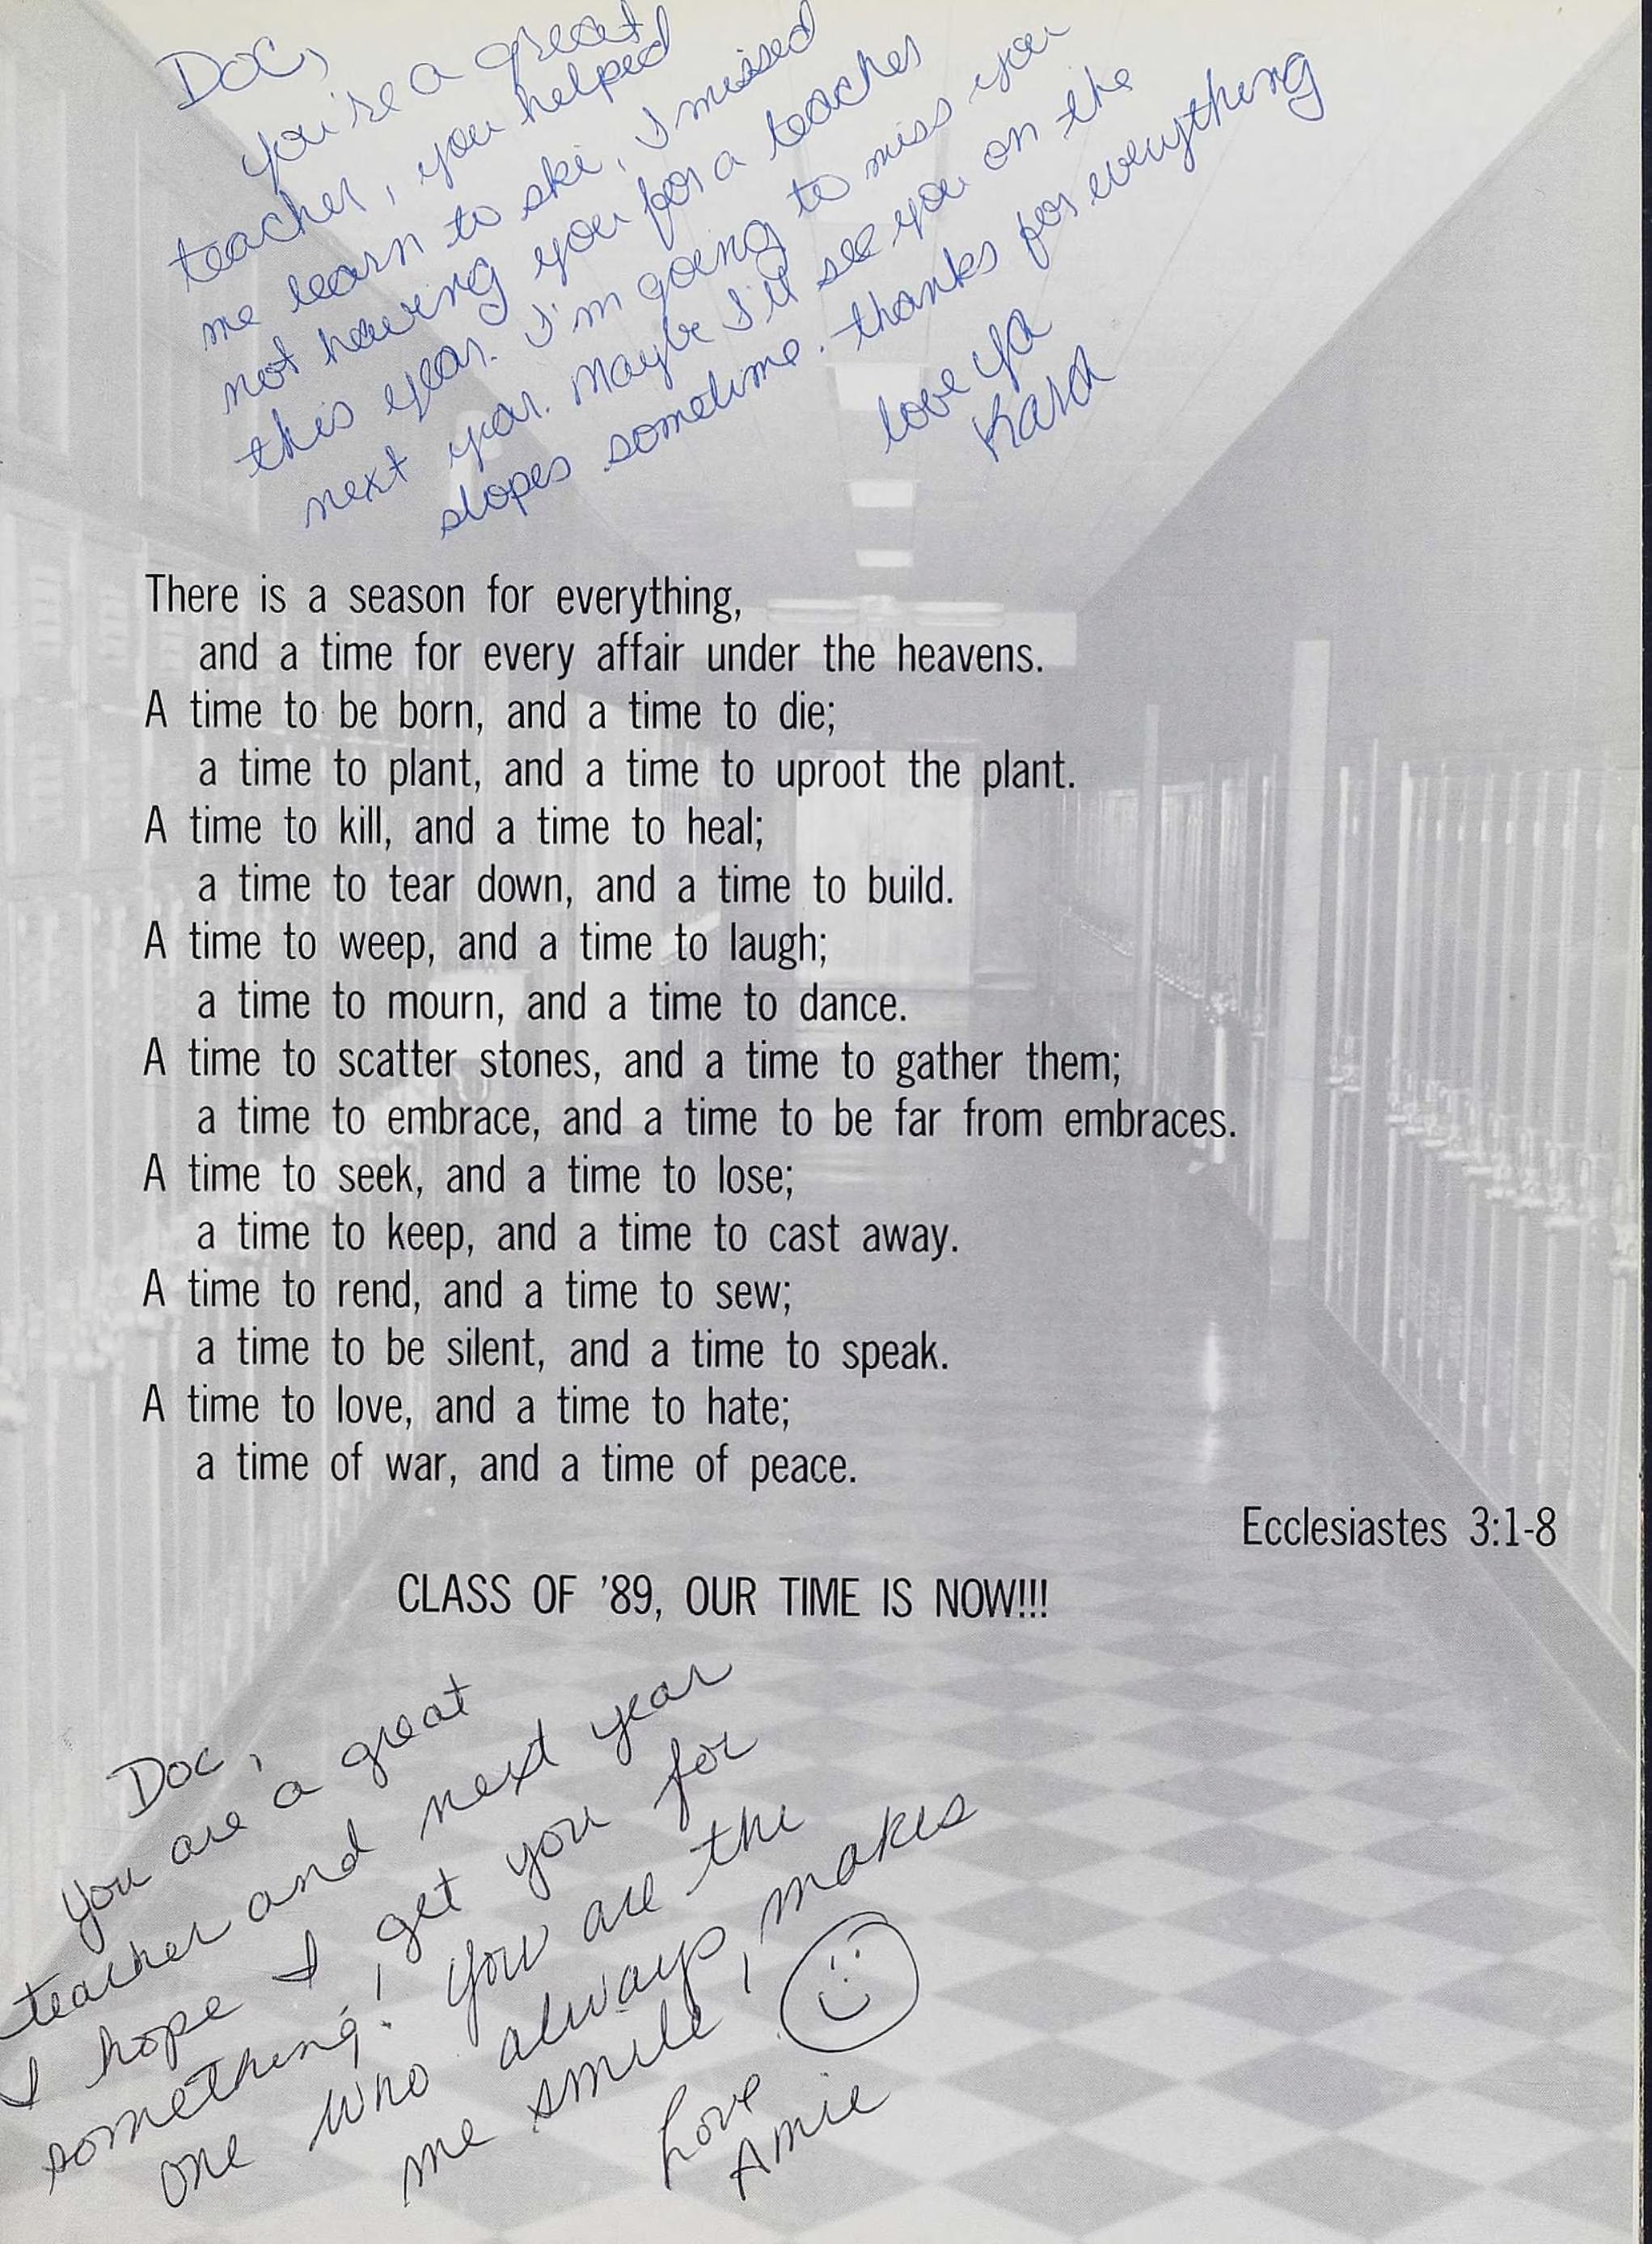 Doc,
you're a great
teacher, you helped
me learn to ski, I missed
not having you for a teacher
this year. I'm going to miss you
next year. Maybe I'll see you on the
slopes sometime. thanks for everything
love ya
Kara
There is a season for everything,
and a time for every affair under the heavens.
A time to be born, and a time to die;
a time to plant, and a time to uproot the plant.
A time to kill, and a time to heal;
a time to tear down, and a time to build.
A time to weep, and a time to laugh;
a time to mourn, and a time to dance.
A time to scatter stones, and a time to gather them;
a time to embrace, and a time to be far from embraces.
A time to seek, and a time to lose;
a time to keep, and a time to cast away.
A time to rend, and a time to sew;
a time to be silent, and a time to speak.
A time to love, and a time to hate;
a time of war, and a time of peace.
Ecclesiastes 3:1-8
CLASS OF '89, OUR TIME IS NOW!!!
Doc,
you are a great
teacher and next year
I hope I get you for
something! You are the
one who always makes
me smile!
Love
Amie